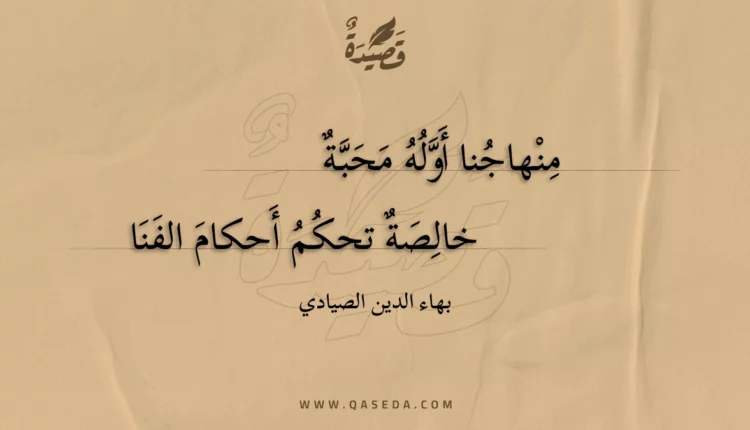 قَصِيدَةٌ
مِنْهاجُنا أَوَّلُهُ مَحَبَّةٌ
خالِصَةٌ تحكُمُ أَحكامَ الفَنَا
بهاء الدين الصيادي
WWW.QASEDA.COM